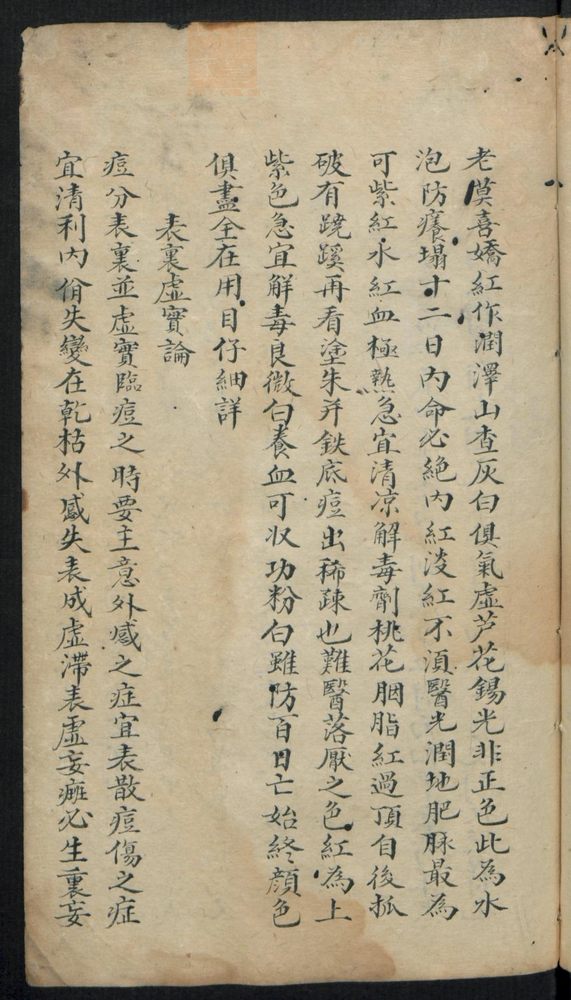 老莫喜嬌紅作潤澤山查灰白俱氣虛芦花錫光非正色此為水
泡防癢塌十二日內命必絕內紅淡紅不須醫光潤地肥脉最為
可紫紅水紅血極熱急宜清凉解毒劑桃花胭脂紅過頂自後抓
破有蹺蹊再看塗朱并鉄底痘出稀疎也難醫落厭之色紅為上
紫色急宜解毒良微白養血可収功粉白雖防百日亡始終顔色
俱盡全在用目仔細詳
表裏虛實論
痘分表裏並虛實臨痘之時要主意外感之症宜表散痘傷之症
宜清利內偹失變在乾枯外感失表成虛滞表虛妄癍必生裏妄